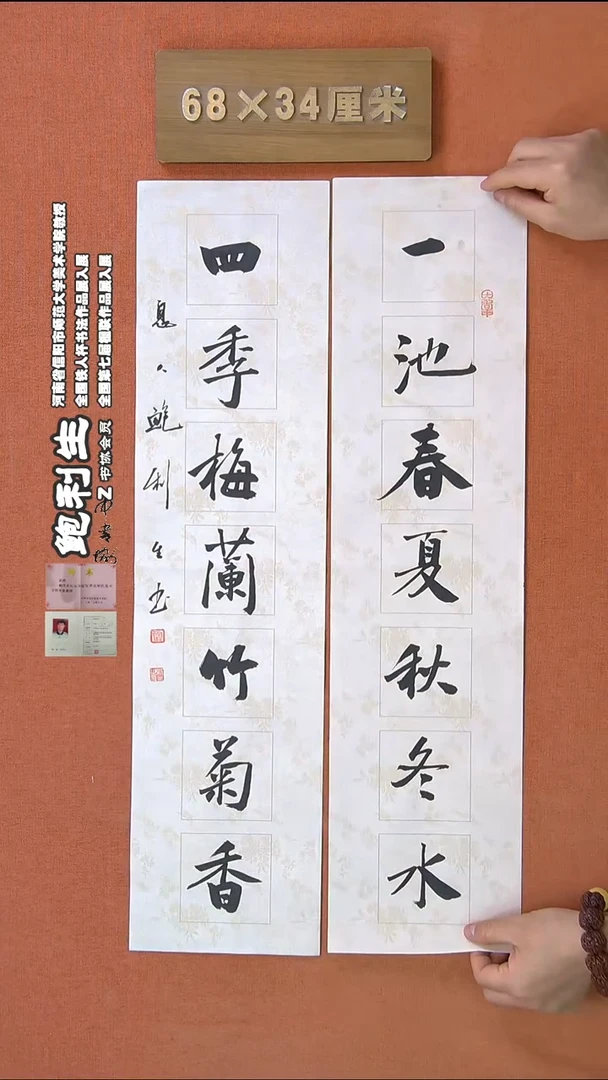 68×34厘米
一池春夏秋冬水
四季梅蘭竹菊香
息人鲍利生书
鲍利生
书协会员
河南省信阳市师范大学美术学院教授
全国铁人杯书法作品展入展
全国第七届楹联作品展入展